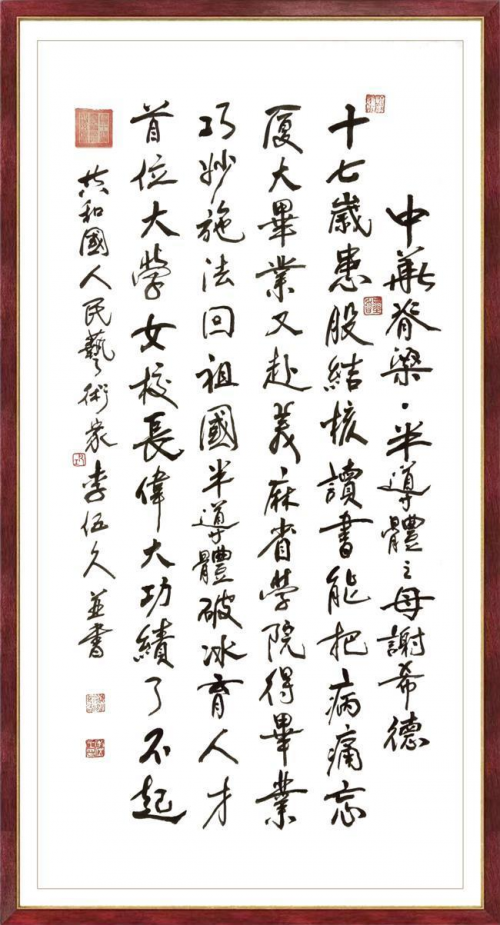 中華脊梁·半導體之母謝希德
十七歲患股結核讀書能把病痛忘
厦大畢業又赴美麻省學院得畢業
巧妙施法回祖國半導體破冰育人才
首位大學女校長偉大功績了不起
共和國人民藝術家李伍久並書